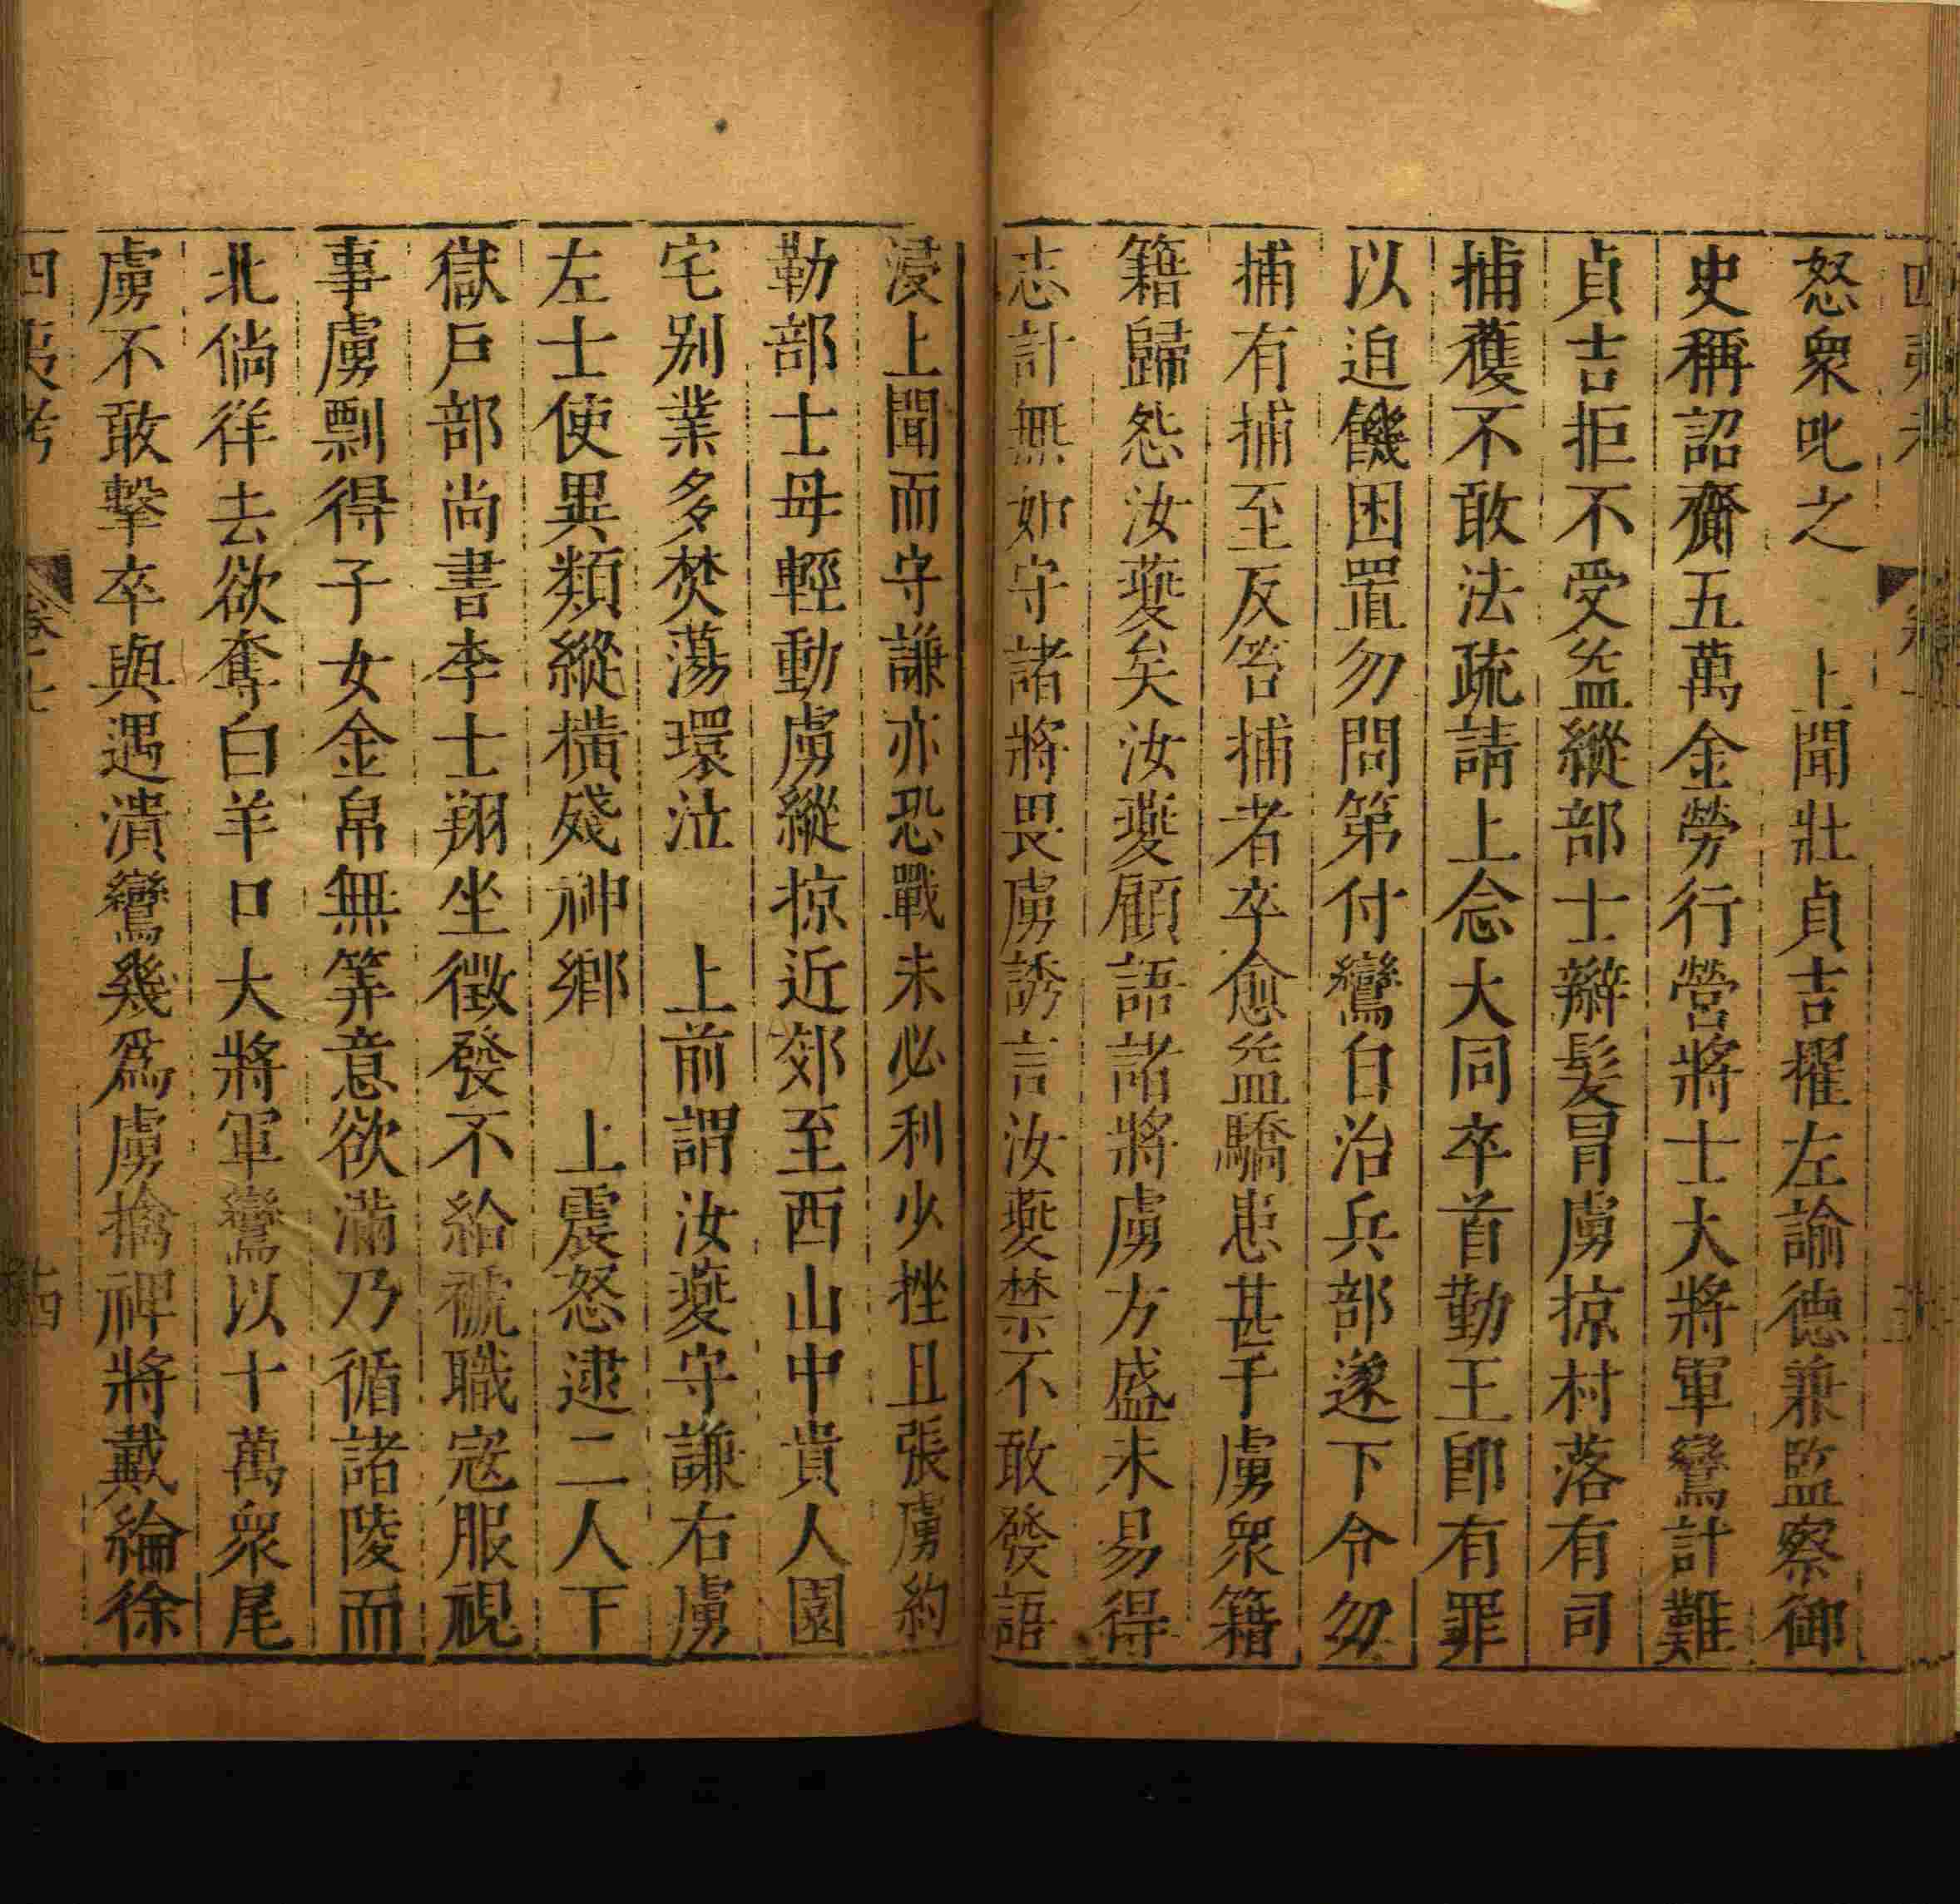 怒衆叱之　上聞壯貞吉擢左諭德兼監察御
史稱詔齎五萬金勞行營將士大將軍鸞計難
貞吉拒不受益縱部士辮髮冒虜掠村落有司
捕獲不敢法疏請上念大同卒首勤王卽有罪
以迫饑困置勿問第付鸞自治兵部遂下令勿
捕有捕至反笞捕者卒愈益驕恚甚于虜衆籍
籍歸怨汝夔矣汝夔顧語諸將虜方盛未易得
志計無如守諸將畏虜誘言汝夔禁不敢發語
浸上聞而守謙亦恐戰未必利少挫且張虜約
勒部士毋輕動虜縱掠近郊至西山中貴人園
宅别業多焚蕩環泣　上前謂汝夔守謙右虜
左士使異類縱横殘神鄉　上震怒逮二人下
獄戶部尚書李士翔坐徵發不給褫職寇服視
事虜剽得子女金帛無筭意欲滿乃循諸陵而
北倘徉去欲奪白羊口大將軍鸞以十萬衆尾
虜不敢擊卒與遇潰鸞幾爲虜擒裨將戴綸徐
四夷考　卷十七　六四